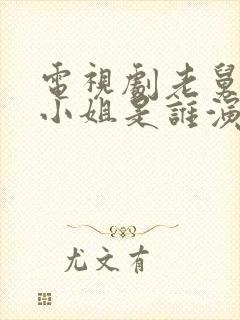 電視劇老舅
小姐是誰演
尤文有